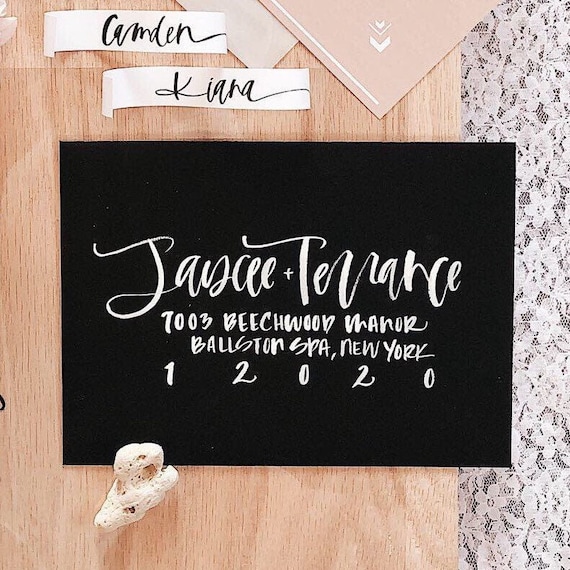 Camden
Kiana
Jaycee + Terrance
7003 BEECHWOOD MANOR
BALLSTON SPA, NEW YORK
1 2 0 2 0